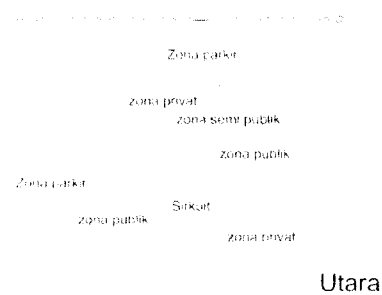 Zona parkir
zona privat
zona semi publik
zona publik
Zona parkir
Sirkuit
zona publik
zona privat
Utara